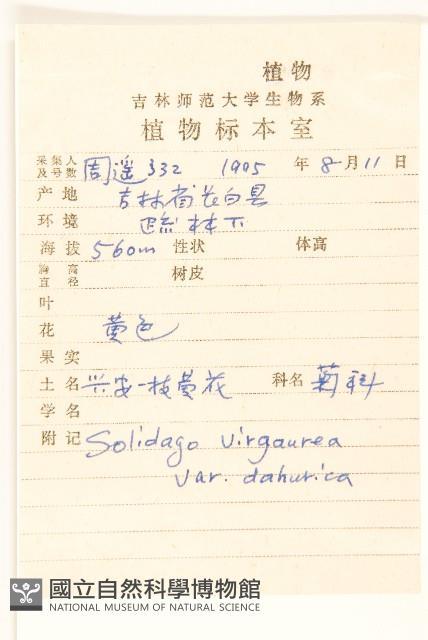 植物
吉林师范大学生物系
植物标本室
采集人及号数 周遥 332 1995年8月11日
产地 吉林省长白县
环境 疏林下
海拔 560m 性状 体高
胸高直径 树皮
叶
花 黄色
果实
土名 兴安一枝黄花 科名 菊科
学名
附记 Solidago virgaurea
var. dahurica
國立自然科學博物館
NATIONAL MUSEUM OF NATURAL SCIENCE